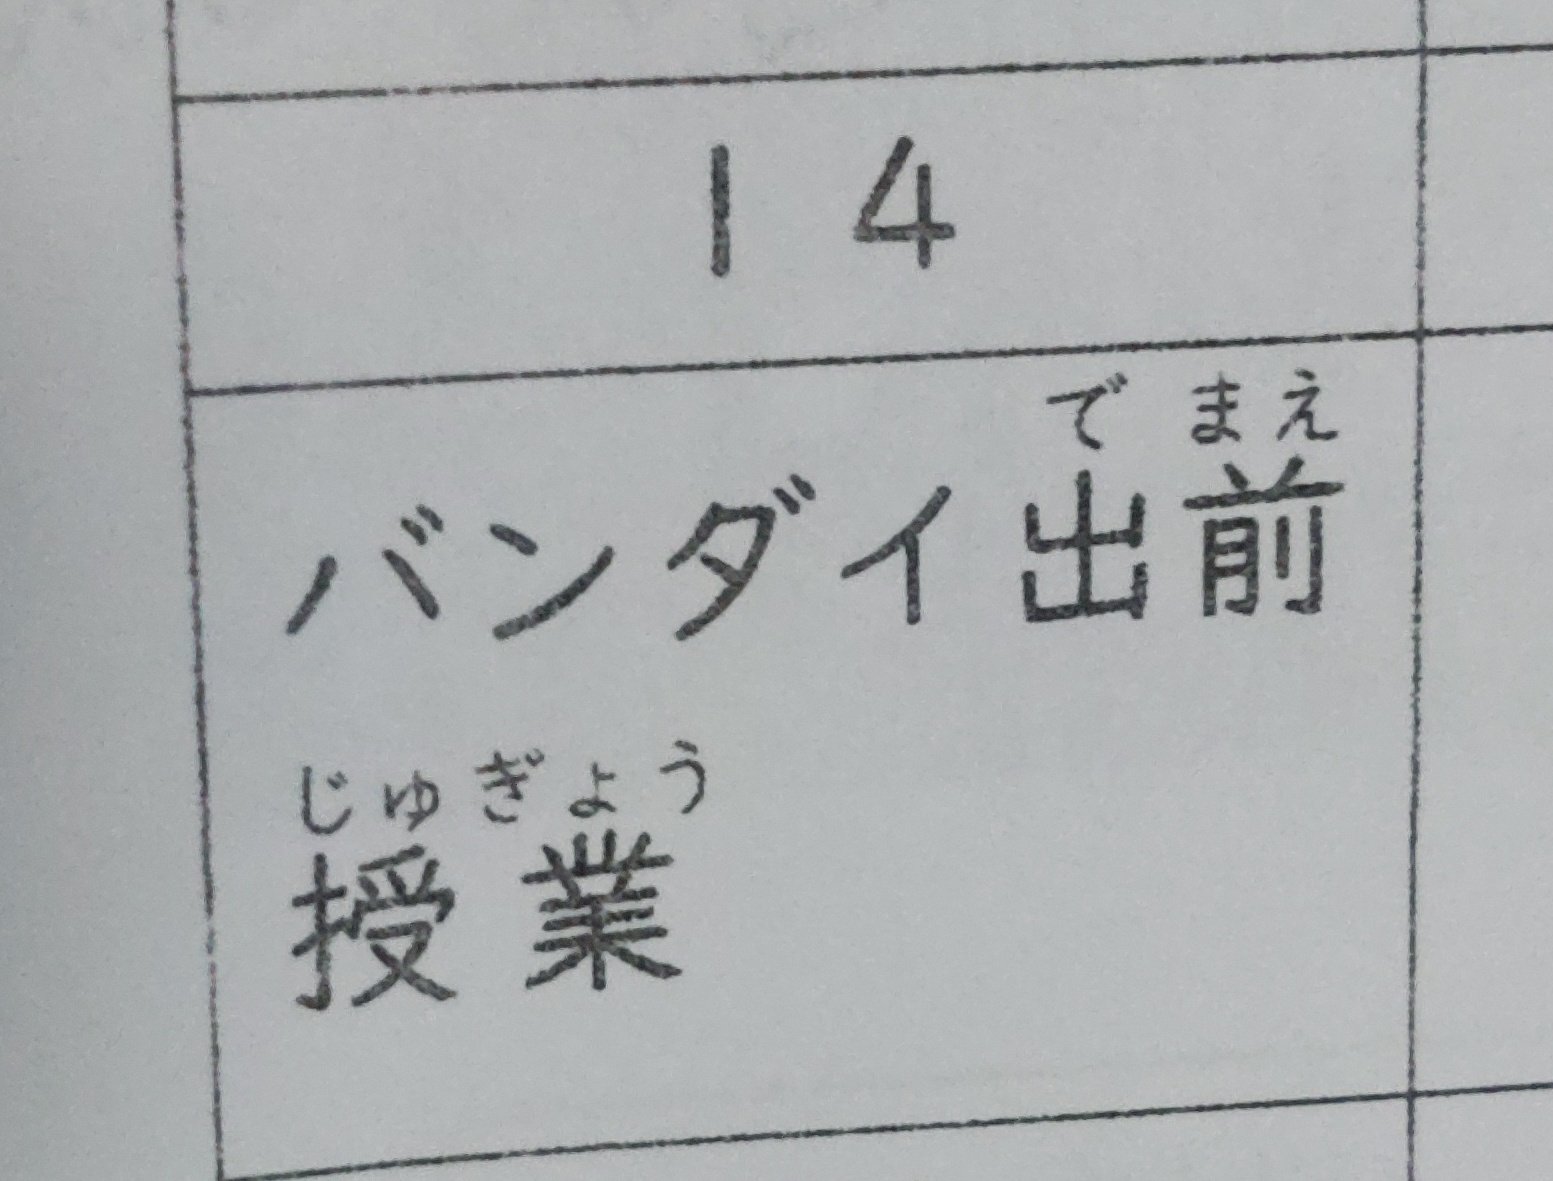 14
でまえ
バンダイ出前
じゅぎょう
授業